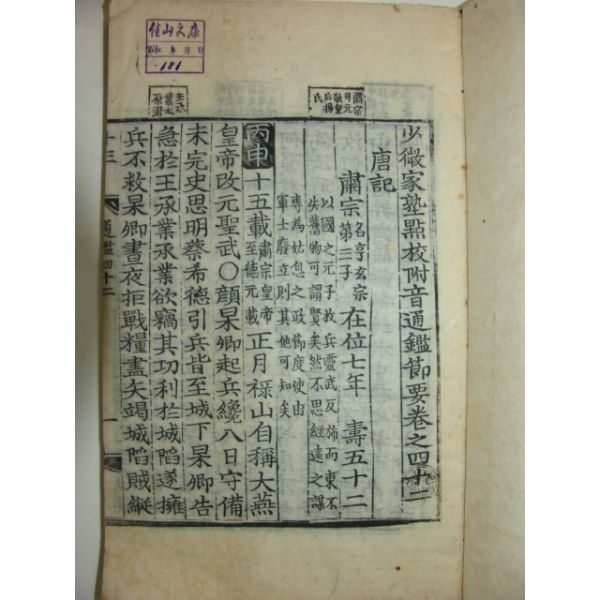 佳山文庫
昭和 年 月 日
181
少微家塾點校附音通鑑節要卷之四十二
唐記
肅宗 名亨玄宗第三子 在位七年 壽五十二
以國之元子救兵靈武反斾而東不
失舊物可謂賢矣然不思經遠之謀
專為姑息之政節度使由
軍士廢立則其他可知矣
丙申 十五載 肅宗皇帝至德元載 正月祿山自稱大燕
皇帝改元聖武○顔杲卿起兵纔八日守備
未完史思明蔡希德引兵皆至城下杲卿告
急於王承業承業欲竊其功利於城陷遂擁
兵不救杲卿晝夜拒戰糧盡矢竭城陷賊縱
通鑑四十二